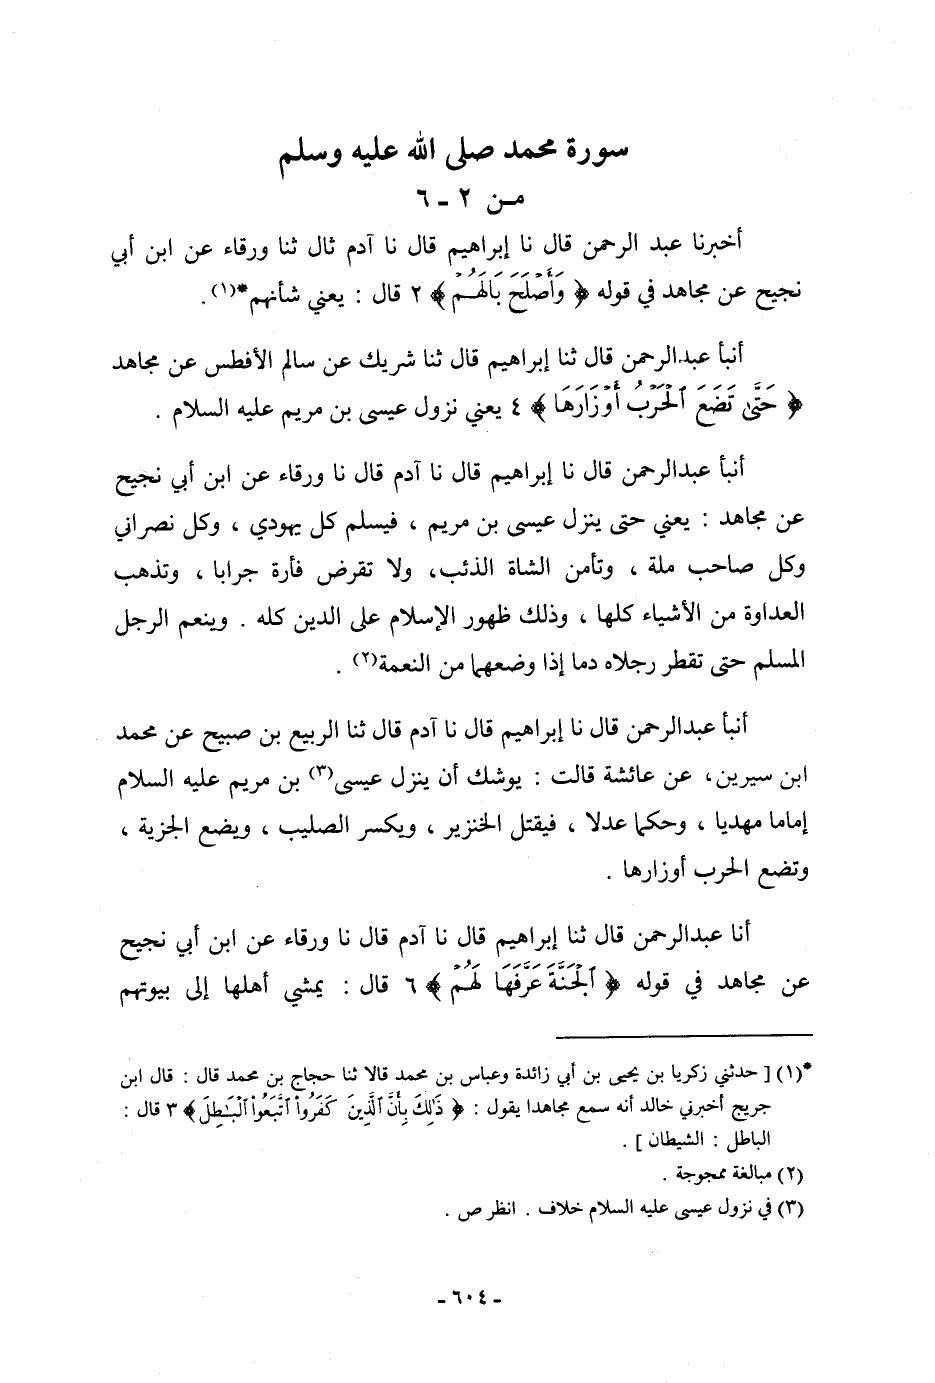 سورة محمد صلى الله عليه وسلم
من ٢ ـ ٦
أخبرنا عبد الرحمن قال نا إبراهيم قال نا آدم ثال ثنا ورقاء عن ابن أبي
نجيح عن مجاهد في قوله ﴿ وَأَصْلَحَ بَالَهُمْ ﴾ ٢ قال : يعني شأنهم*(١) .
أنبأ عبدالرحمن قال ثنا إبراهيم قال ثنا شريك عن سالم الأفطس عن مجاهد
﴿ حَتَّى تَضَعَ ٱلْحَرْبُ أَوْزَارَهَا ﴾ ٤ يعني نزول عيسى بن مريم عليه السلام .
أنبأ عبدالرحمن قال نا إبراهيم قال نا آدم قال نا ورقاء عن ابن أبي نجيح
عن مجاهد : يعني حتى ينزل عيسى بن مريم ، فيسلم كل يهودي ، وكل نصراني
وكل صاحب ملة ، وتأمن الشاة الذئب، ولا تقرض فأرة جرابا ، وتذهب
العداوة من الأشياء كلها ، وذلك ظهور الإسلام على الدين كله . وينعم الرجل
المسلم حتى تقطر رجلاه دما إذا وضعهما من النعمة(٢) .
أنبأ عبدالرحمن قال نا إبراهيم قال نا آدم قال ثنا الربيع بن صبيح عن محمد
ابن سيرين، عن عائشة قالت : يوشك أن ينزل عيسى(٣) بن مريم عليه السلام
إماما مهديا ، وحكما عدلا ، فيقتل الخنزير ، ويكسر الصليب ، ويضع الجزية ،
وتضع الحرب أوزارها .
أنا عبدالرحمن قال ثنا إبراهيم قال نا آدم قال نا ورقاء عن ابن أبي نجيح
عن مجاهد في قوله ﴿ ٱلْجَنَّةَ عَرَّفَهَا لَهُمْ ﴾ ٦ قال : يمشي أهلها إلى بيوتهم
*(١) [ حدثني زكريا بن يحيى بن أبي زائدة وعباس بن محمد قالا ثنا حجاج بن محمد قال : قال ابن
جريج أخبرني خالد أنه سمع مجاهدا يقول : ﴿ ذَٰلِكَ بِأَنَّ ٱلَّذِينَ كَفَرُوا۟ ٱتَّبَعُوا۟ ٱلْبَٰطِلَ ﴾ ٣ قال :
الباطل : الشيطان ] .
(٢) مبالغة ممجوجة .
(٣) في نزول عيسى عليه السلام خلاف . انظر ص .
ـ ٦٠٤ ـ